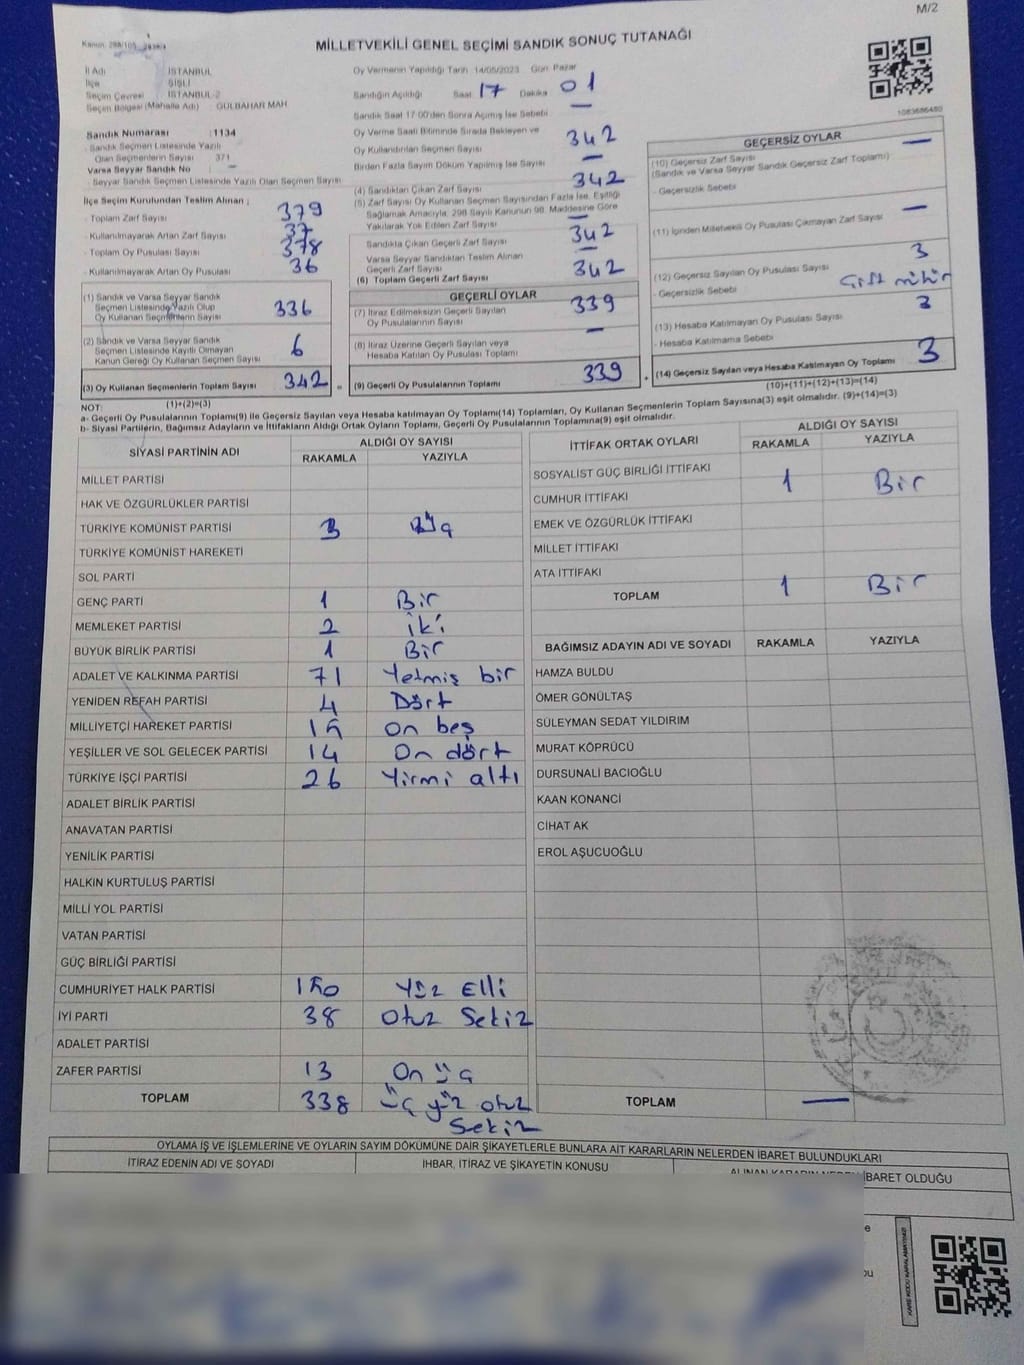 M/2
Kanun: 298/105
MİLLETVEKİLİ GENEL SEÇİMİ SANDIK SONUÇ TUTANAĞI
İl Adı İSTANBUL
İlçe ŞİŞLİ
Seçim Çevresi İSTANBUL-2
Seçim Bölgesi (Mahalle Adı) : GÜLBAHAR MAH
Sandık Numarası :1134
- Sandık Seçmen Listesinde Yazılı
Olan Seçmenlerin Sayısı 371
Varsa Seyyar Sandık No –
- Seyyar Sandık Seçmen Listesinde Yazılı Olan Seçmen Sayısı
İlçe Seçim Kurulundan Teslim Alınan ;
- Toplam Zarf Sayısı 379
- Kullanılmayarak Artan Zarf Sayısı 37
- Toplam Oy Pusulası Sayısı 378
- Kullanılmayarak Artan Oy Pusulası 36
(1) Sandık ve Varsa Seyyar Sandık
Seçmen Listesinde Yazılı Olup
Oy Kullanan Seçmenlerin Sayısı 336
(2) Sandık ve Varsa Seyyar Sandık
Seçmen Listesinde Kayıtlı Olmayan
Kanun Gereği Oy Kullanan Seçmen Sayısı 6
(3) Oy Kullanan Seçmenlerin Toplam Sayısı 342 =
(1)+(2)=(3)
Oy Vermenin Yapıldığı Tarih :14/05/2023 Gün: Pazar
Sandığın Açıldığı Saat 17 Dakika 01
Sandık Saat 17:00'den Sonra Açılmış İse Sebebi –
Oy Verme Saati Bitiminde Sırada Bekleyen ve
Oy Kullandırılan Seçmen Sayısı 342
Birden Fazla Sayım Döküm Yapılmış İse Sayısı –
(4) Sandıktan Çıkan Zarf Sayısı 342
(5) Zarf Sayısı Oy Kullanan Seçmen Sayısından Fazla İse, Eşitliği
Sağlamak Amacıyla, 298 Sayılı Kanunun 98. Maddesine Göre
Yakılarak Yok Edilen Zarf Sayısı –
Sandıkta Çıkan Geçerli Zarf Sayısı 342
Varsa Seyyar Sandıktan Teslim Alınan
Geçerli Zarf Sayısı
(6) Toplam Geçerli Zarf Sayısı 342
GEÇERLİ OYLAR
(7) İtiraz Edilmeksizin Geçerli Sayılan
Oy Pusulalarının Sayısı 339
(8) İtiraz Üzerine Geçerli Sayılan veya
Hesaba Katılan Oy Pusulası Toplamı –
(9) Geçerli Oy Pusulalarının Toplamı 339 +
1083686480
GEÇERSİZ OYLAR
(10) Geçersiz Zarf Sayısı –
(Sandık ve Varsa Seyyar Sandık Geçersiz Zarf Toplamı)
- Geçersizlik Sebebi
(11) İçinden Milletvekili Oy Pusulası Çıkmayan Zarf Sayısı –
(12) Geçersiz Sayılan Oy Pusulası Sayısı 3
- Geçersizlik Sebebi Çift mühür
(13) Hesaba Katılmayan Oy Pusulası Sayısı 3
- Hesaba Katılmama Sebebi
(14) Geçersiz Sayılan veya Hesaba Katılmayan Oy Toplamı 3
(10)+(11)+(12)+(13)=(14)
NOT:
a- Geçerli Oy Pusulalarının Toplamı(9) ile Geçersiz Sayılan veya Hesaba katılmayan Oy Toplamı(14) Toplamları, Oy Kullanan Seçmenlerin Toplam Sayısına(3) eşit olmalıdır. (9)+(14)=(3)
b- Siyasi Partilerin, Bağımsız Adayların ve İttifakların Aldığı Ortak Oyların Toplamı, Geçerli Oy Pusulalarının Toplamına(9) eşit olmalıdır.
SİYASİ PARTİNİN ADI ALDIĞI OY SAYISI
RAKAMLA YAZIYLA
MİLLET PARTİSİ
HAK VE ÖZGÜRLÜKLER PARTİSİ
TÜRKİYE KOMÜNİST PARTİSİ 3 Üç
TÜRKİYE KOMÜNİST HAREKETİ
SOL PARTİ
GENÇ PARTİ 1 Bir
MEMLEKET PARTİSİ 2 İki
BÜYÜK BİRLİK PARTİSİ 1 Bir
ADALET VE KALKINMA PARTİSİ 71 Yetmiş bir
YENİDEN REFAH PARTİSİ 4 Dört
MİLLİYETÇİ HAREKET PARTİSİ 15 On beş
YEŞİLLER VE SOL GELECEK PARTİSİ 14 On dört
TÜRKİYE İŞÇİ PARTİSİ 26 Yirmi altı
ADALET BİRLİK PARTİSİ
ANAVATAN PARTİSİ
YENİLİK PARTİSİ
HALKIN KURTULUŞ PARTİSİ
MİLLİ YOL PARTİSİ
VATAN PARTİSİ
GÜÇ BİRLİĞİ PARTİSİ
CUMHURİYET HALK PARTİSİ 150 Yüz Elli
İYİ PARTİ 38 Otuz Sekiz
ADALET PARTİSİ
ZAFER PARTİSİ 13 On üç
TOPLAM 338 Üç yüz otuz
Sekiz
İTTİFAK ORTAK OYLARI ALDIĞI OY SAYISI
RAKAMLA YAZIYLA
SOSYALİST GÜÇ BİRLİĞİ İTTİFAKI
CUMHUR İTTİFAKI 1 Bir
EMEK VE ÖZGÜRLÜK İTTİFAKI
MİLLET İTTİFAKI
ATA İTTİFAKI
TOPLAM 1 Bir
BAĞIMSIZ ADAYIN ADI VE SOYADI RAKAMLA YAZIYLA
HAMZA BULDU
ÖMER GÖNÜLTAŞ
SÜLEYMAN SEDAT YILDIRIM
MURAT KÖPRÜCÜ
DURSUNALİ BACIOĞLU
KAAN KONANCİ
CİHAT AK
EROL AŞUCUOĞLU
TOPLAM –
OYLAMA İŞ VE İŞLEMLERİNE VE OYLARIN SAYIM DÖKÜMÜNE DAİR ŞİKAYETLERLE BUNLARA AİT KARARLARIN NELERDEN İBARET BULUNDUKLARI
İTİRAZ EDENİN ADI VE SOYADI İHBAR, İTİRAZ VE ŞİKAYETİN KONUSU ALINAN KARARIN NEDEN İBARET OLDUĞU